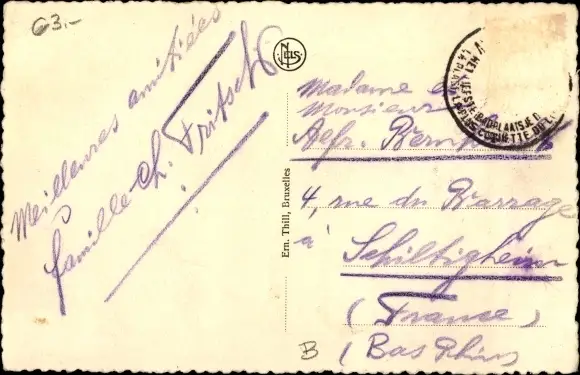 63.-
Meilleures amitiées
famille Ch. Fritsch
NELS
Ern. Thill, Bruxelles
Madame et
Monsieur
Alfr.
4, rue du Barrage
à
Schiltigheim
(France)
(Bas Rhin
B